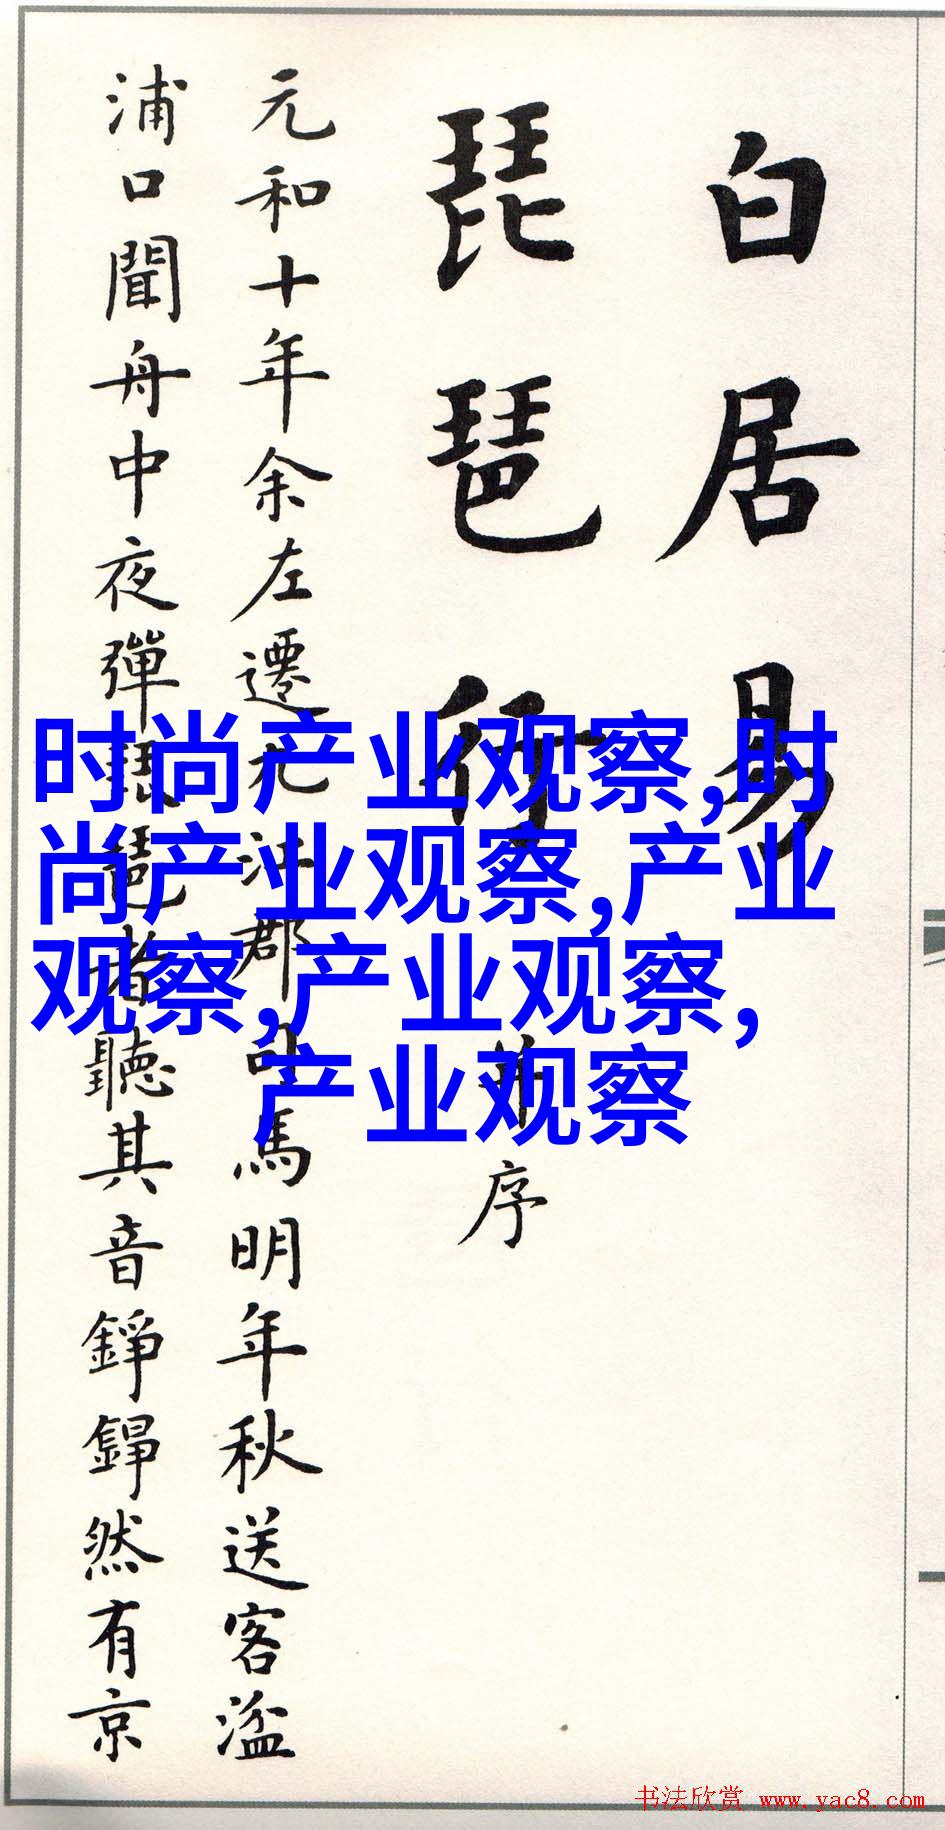 白居易
琵琶行 并序
元和十年余左遷九江郡司馬明年秋送客湓
浦口聞舟中夜彈琵琶者聽其音錚錚然有京
时尚产业观察,时
尚产业观察,产业
观察,产业观察,
产业观察
书法欣赏 www.yac8.com